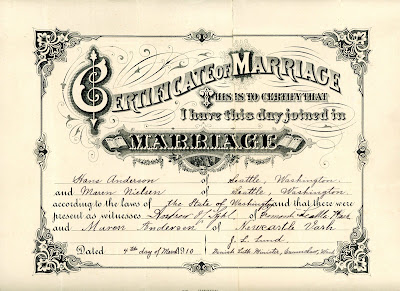 CERTIFICATE OF MARRIAGE
THIS IS TO CERTIFY THAT
I have this day joined in
MARRIAGE
Hans Anderson of Seattle, Washington
and Maren Nielsen of Seattle, Washington
according to the laws of the State of Washington and that there were
present as witnesses of
and Maren Andersen of Newcastle Wash
Dated 4th day of March 1910 J. L. Lund
Danish Luth. Minister, Enumclaw, Wash